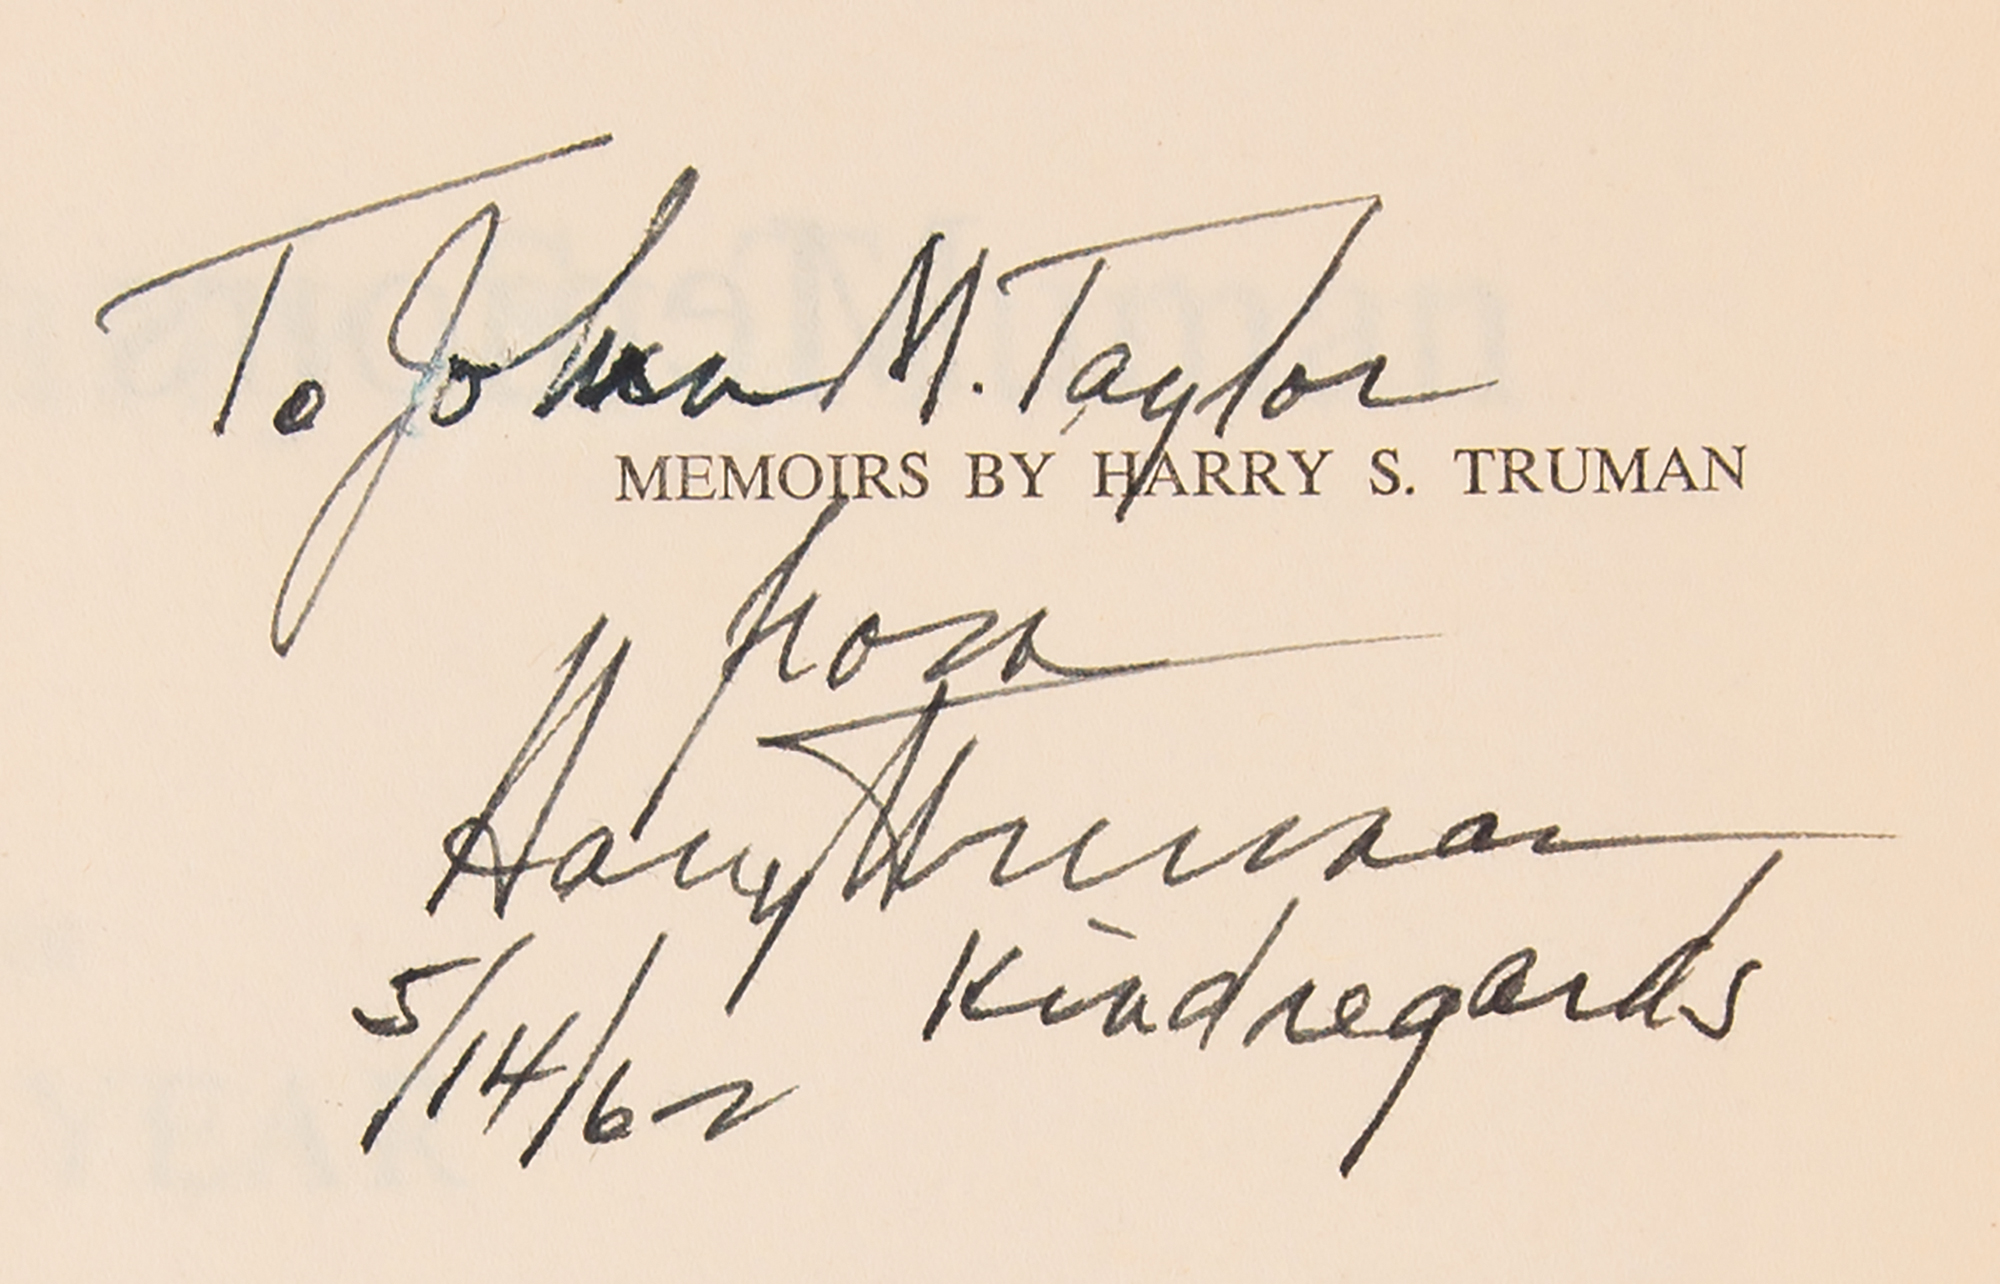 To John M. Taylor
MEMOIRS BY HARRY S. TRUMAN
from
Harry Truman
Kindregards
5/14/62